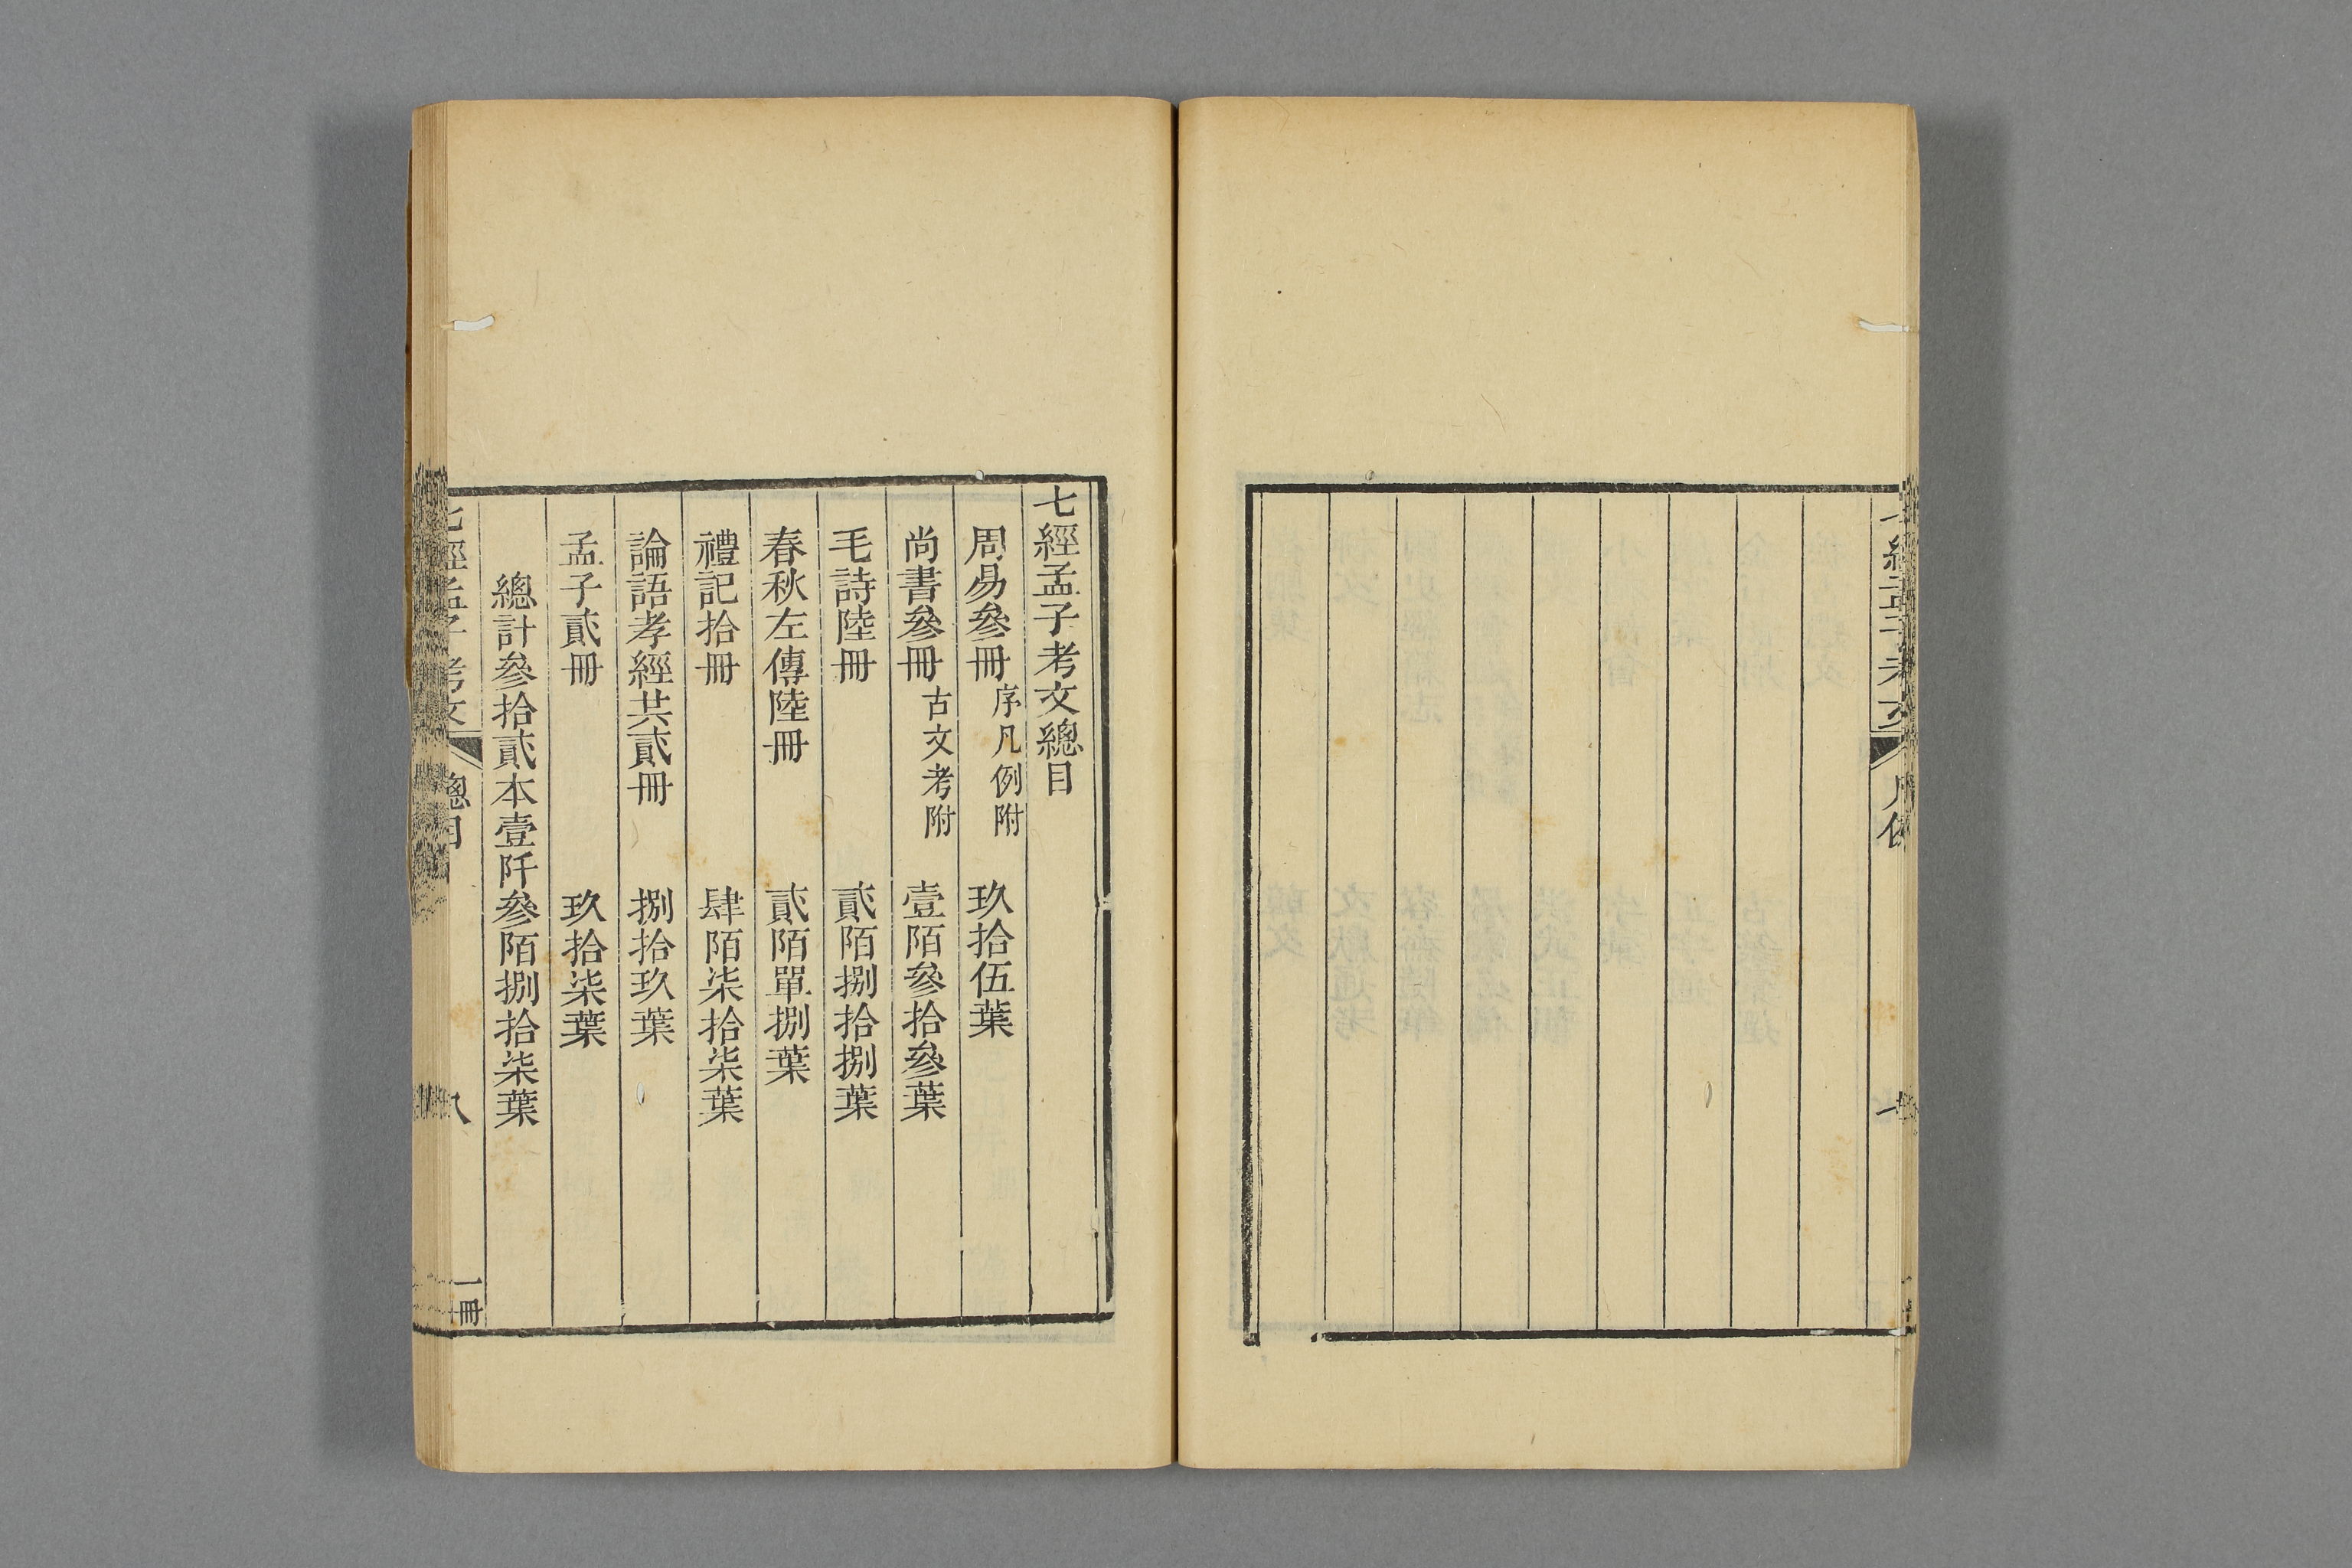 七經孟子考文總目
周易參冊 序凡例附 玖拾伍葉
尚書參冊 古文考附 壹陌參拾參葉
毛詩陸冊 貳陌捌拾捌葉
春秋左傳陸冊 貳陌單捌葉
禮記拾冊 肆陌柒拾柒葉
論語孝經共貳冊 捌拾玖葉
孟子貳冊 玖拾柒葉
總計參拾貳本壹阡參陌捌拾柒葉
七經孟子考文 總目 八 一冊